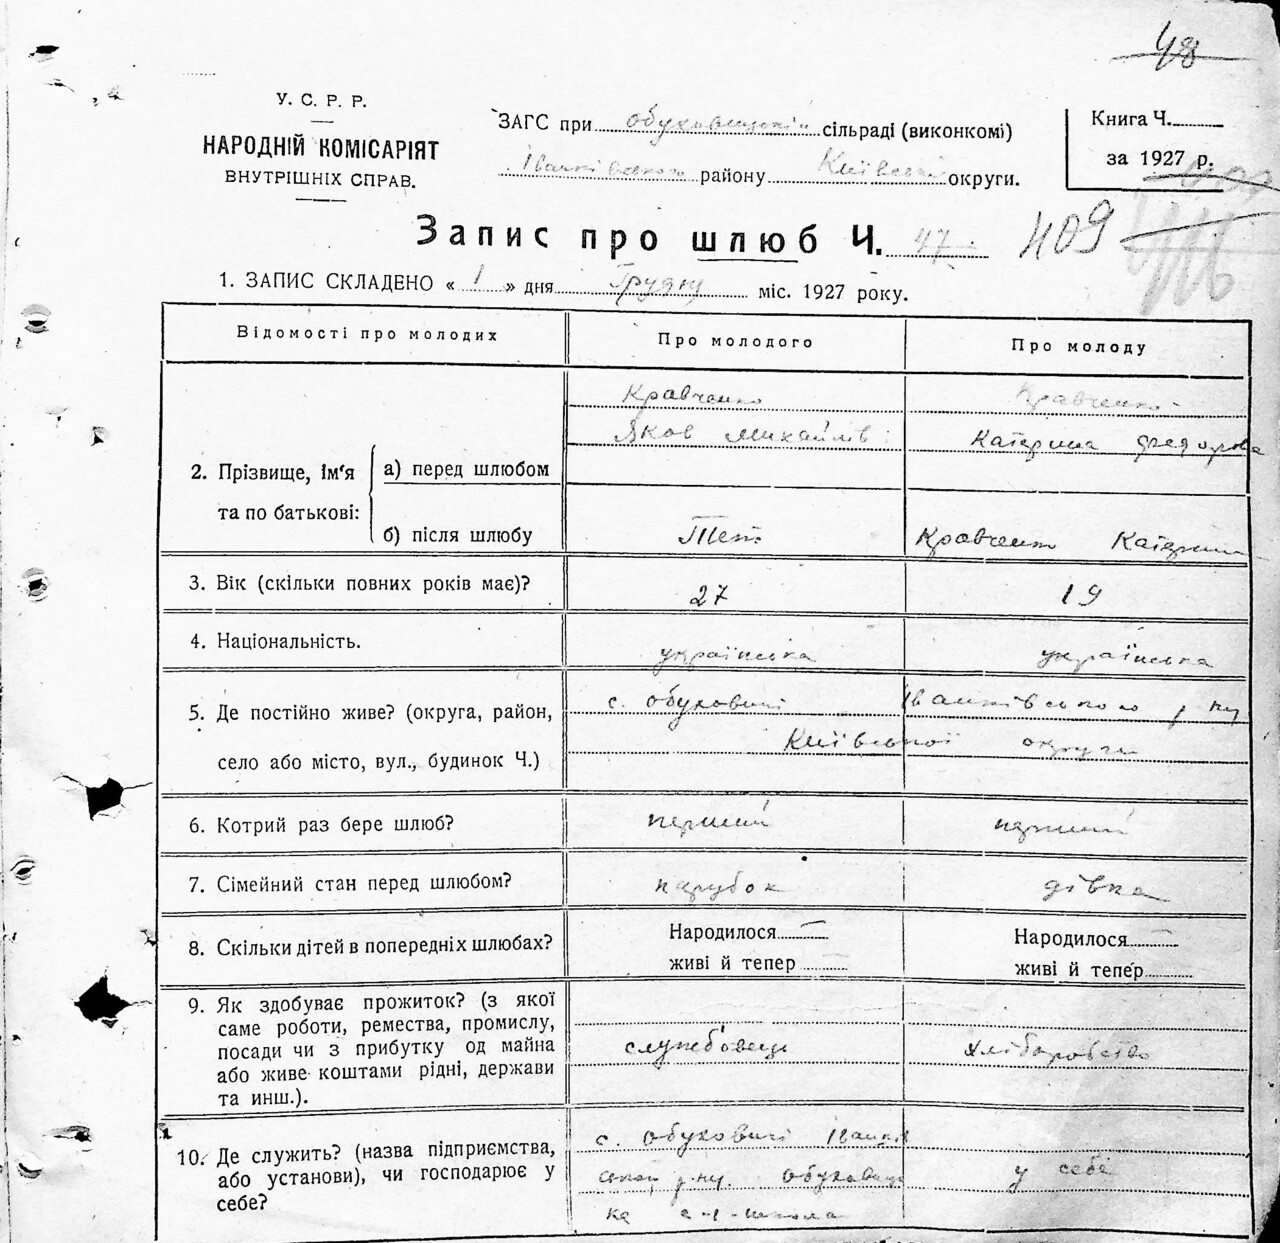 48
У. С. Р. Р.
НАРОДНІЙ КОМІСАРІЯТ
ВНУТРІШНІХ СПРАВ.
ЗАГС при обуховицькій сільраді (виконкомі)
Іванківського району Київської округи.
Книга Ч.
за 1927 р.
Запис про шлюб Ч. 47 409
1. ЗАПИС СКЛАДЕНО « 1 » дня Грудня міс. 1927 року.
Відомості про молодих Про молодого Про молоду
Кравченко Кравченко
Яков Михайлів Катерина Федорова
2. Прізвище, ім'я а) перед шлюбом
та по батькові: б) після шлюбу Теж Кравченко Катерина
3. Вік (скільки повних років має)? 27 19
4. Національність. українська українська
с. обуховичі Іванківського р-ну
5. Де постійно живе? (округа, район,
Київської округи
село або місто, вул., будинок Ч.)
6. Котрий раз бере шлюб? перший перший
7. Сімейний стан перед шлюбом? парубок дівка
8. Скільки дітей в попередніх шлюбах? Народилося — Народилося —
живі й тепер живі й тепер
9. Як здобуває прожиток? (з якої
саме роботи, ремества, промислу,
посади чи з прибутку од майна службовець хліборобство
або живе коштами рідні, держави
та инш.).
с. обуховичі Іванків
10. Де служить? (назва підприємства,
або установи), чи господарює у р-ну. обуховиц у себе
себе? ка школа